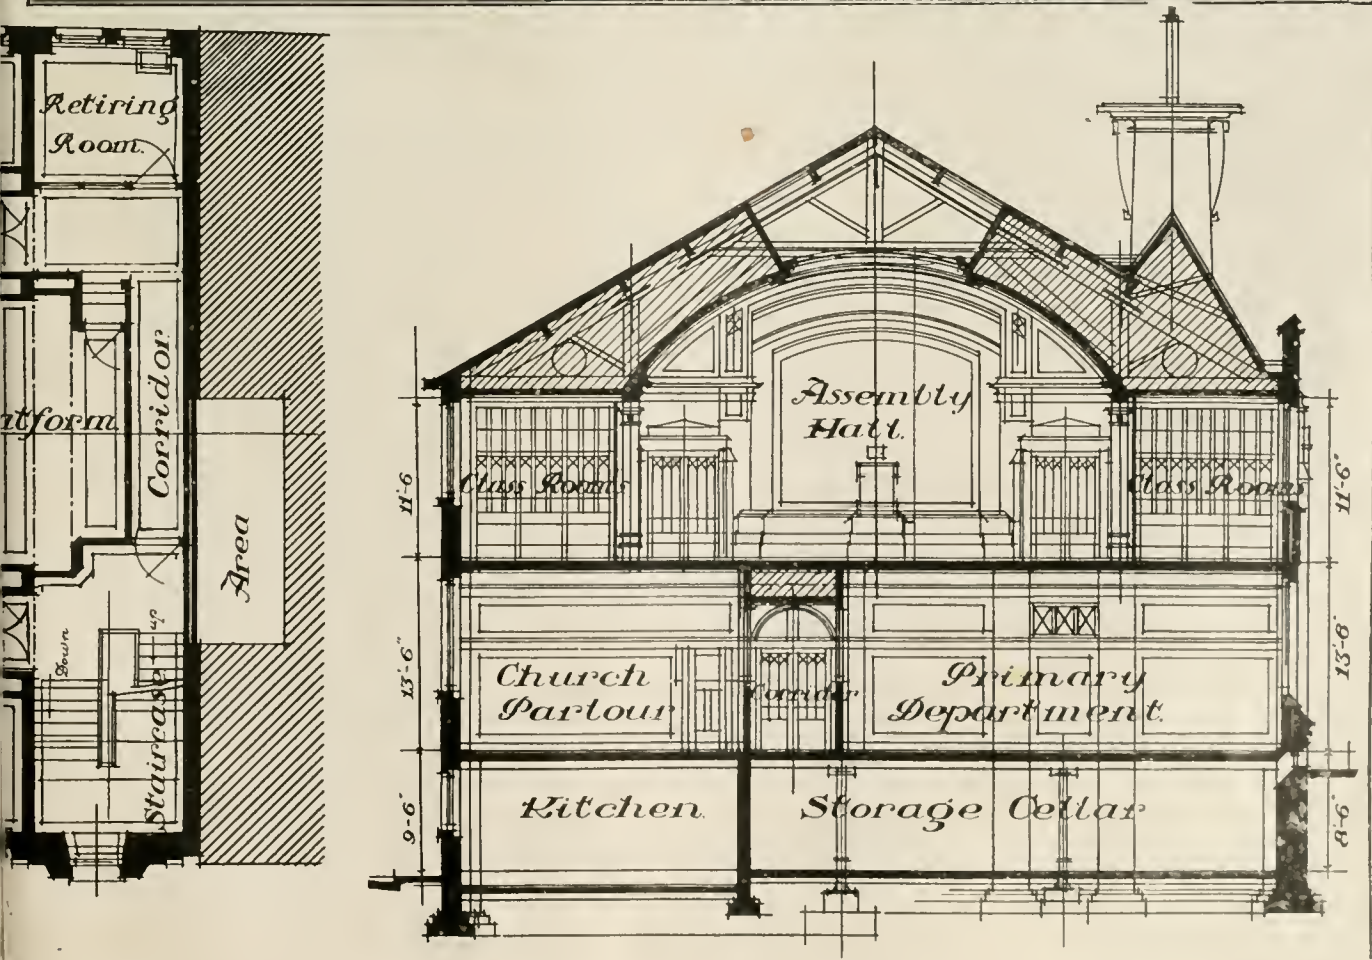 Retiring
Room.
tform.
Corridor.
Area
Down
up
Staircase
Assembly
Hall.
Class Rooms
Class Rooms
11'-6
11'-6"
Church
Parlour
Corridor
Primary
Department.
13'-6"
13'-6"
Kitchen.
Storage Cellar
9'-6"
8'-6"